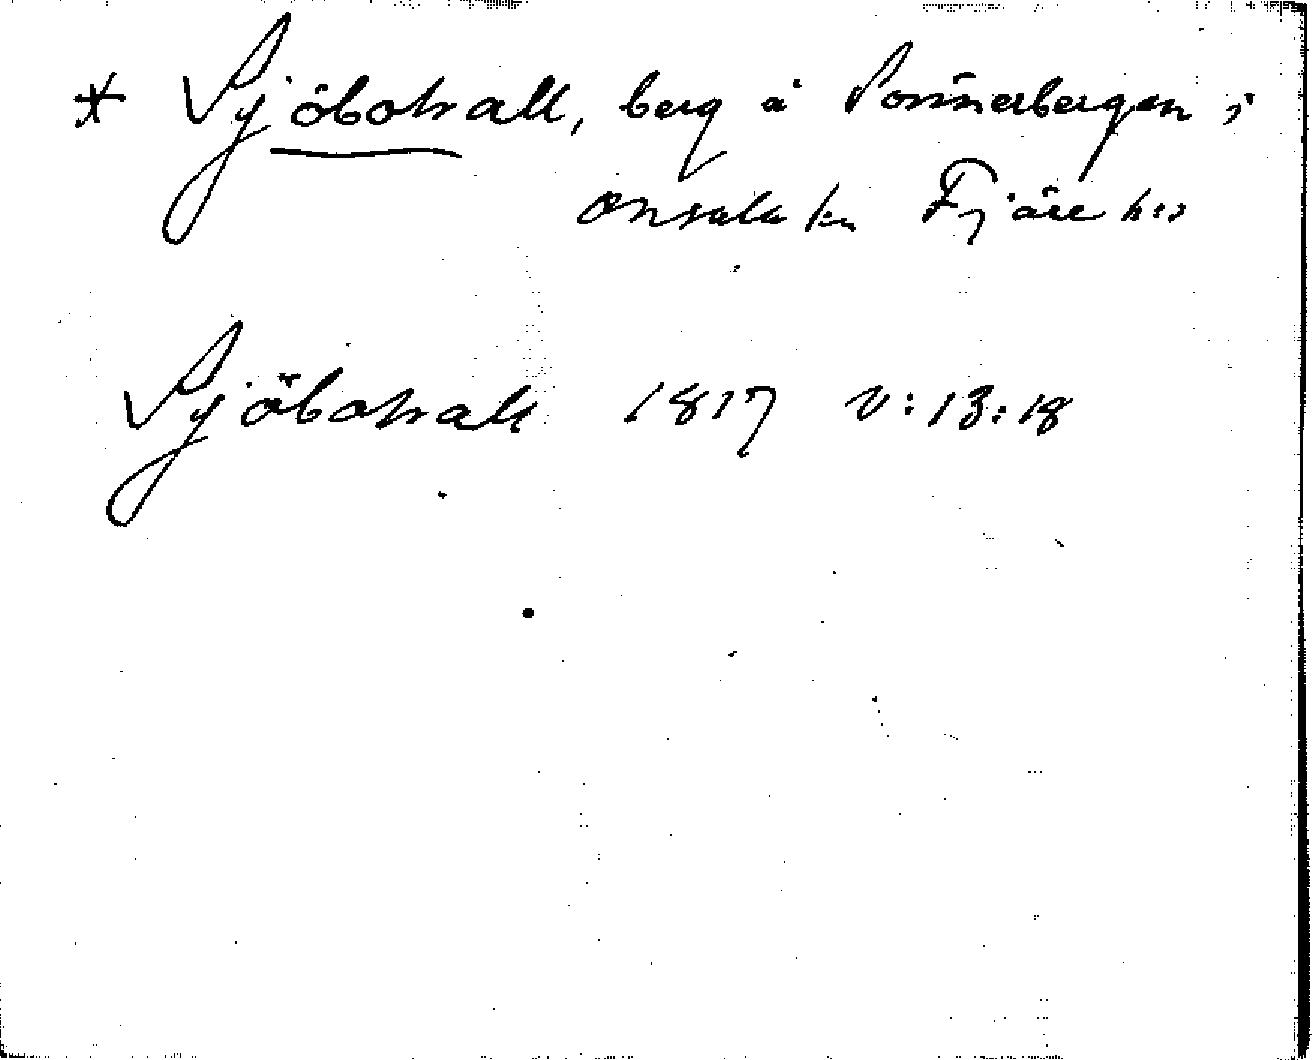 * Sjöbohall, berg å Sönnerbergen i
Onsala sn Fjäre hd
Sjöbohall 1817 V:13:18